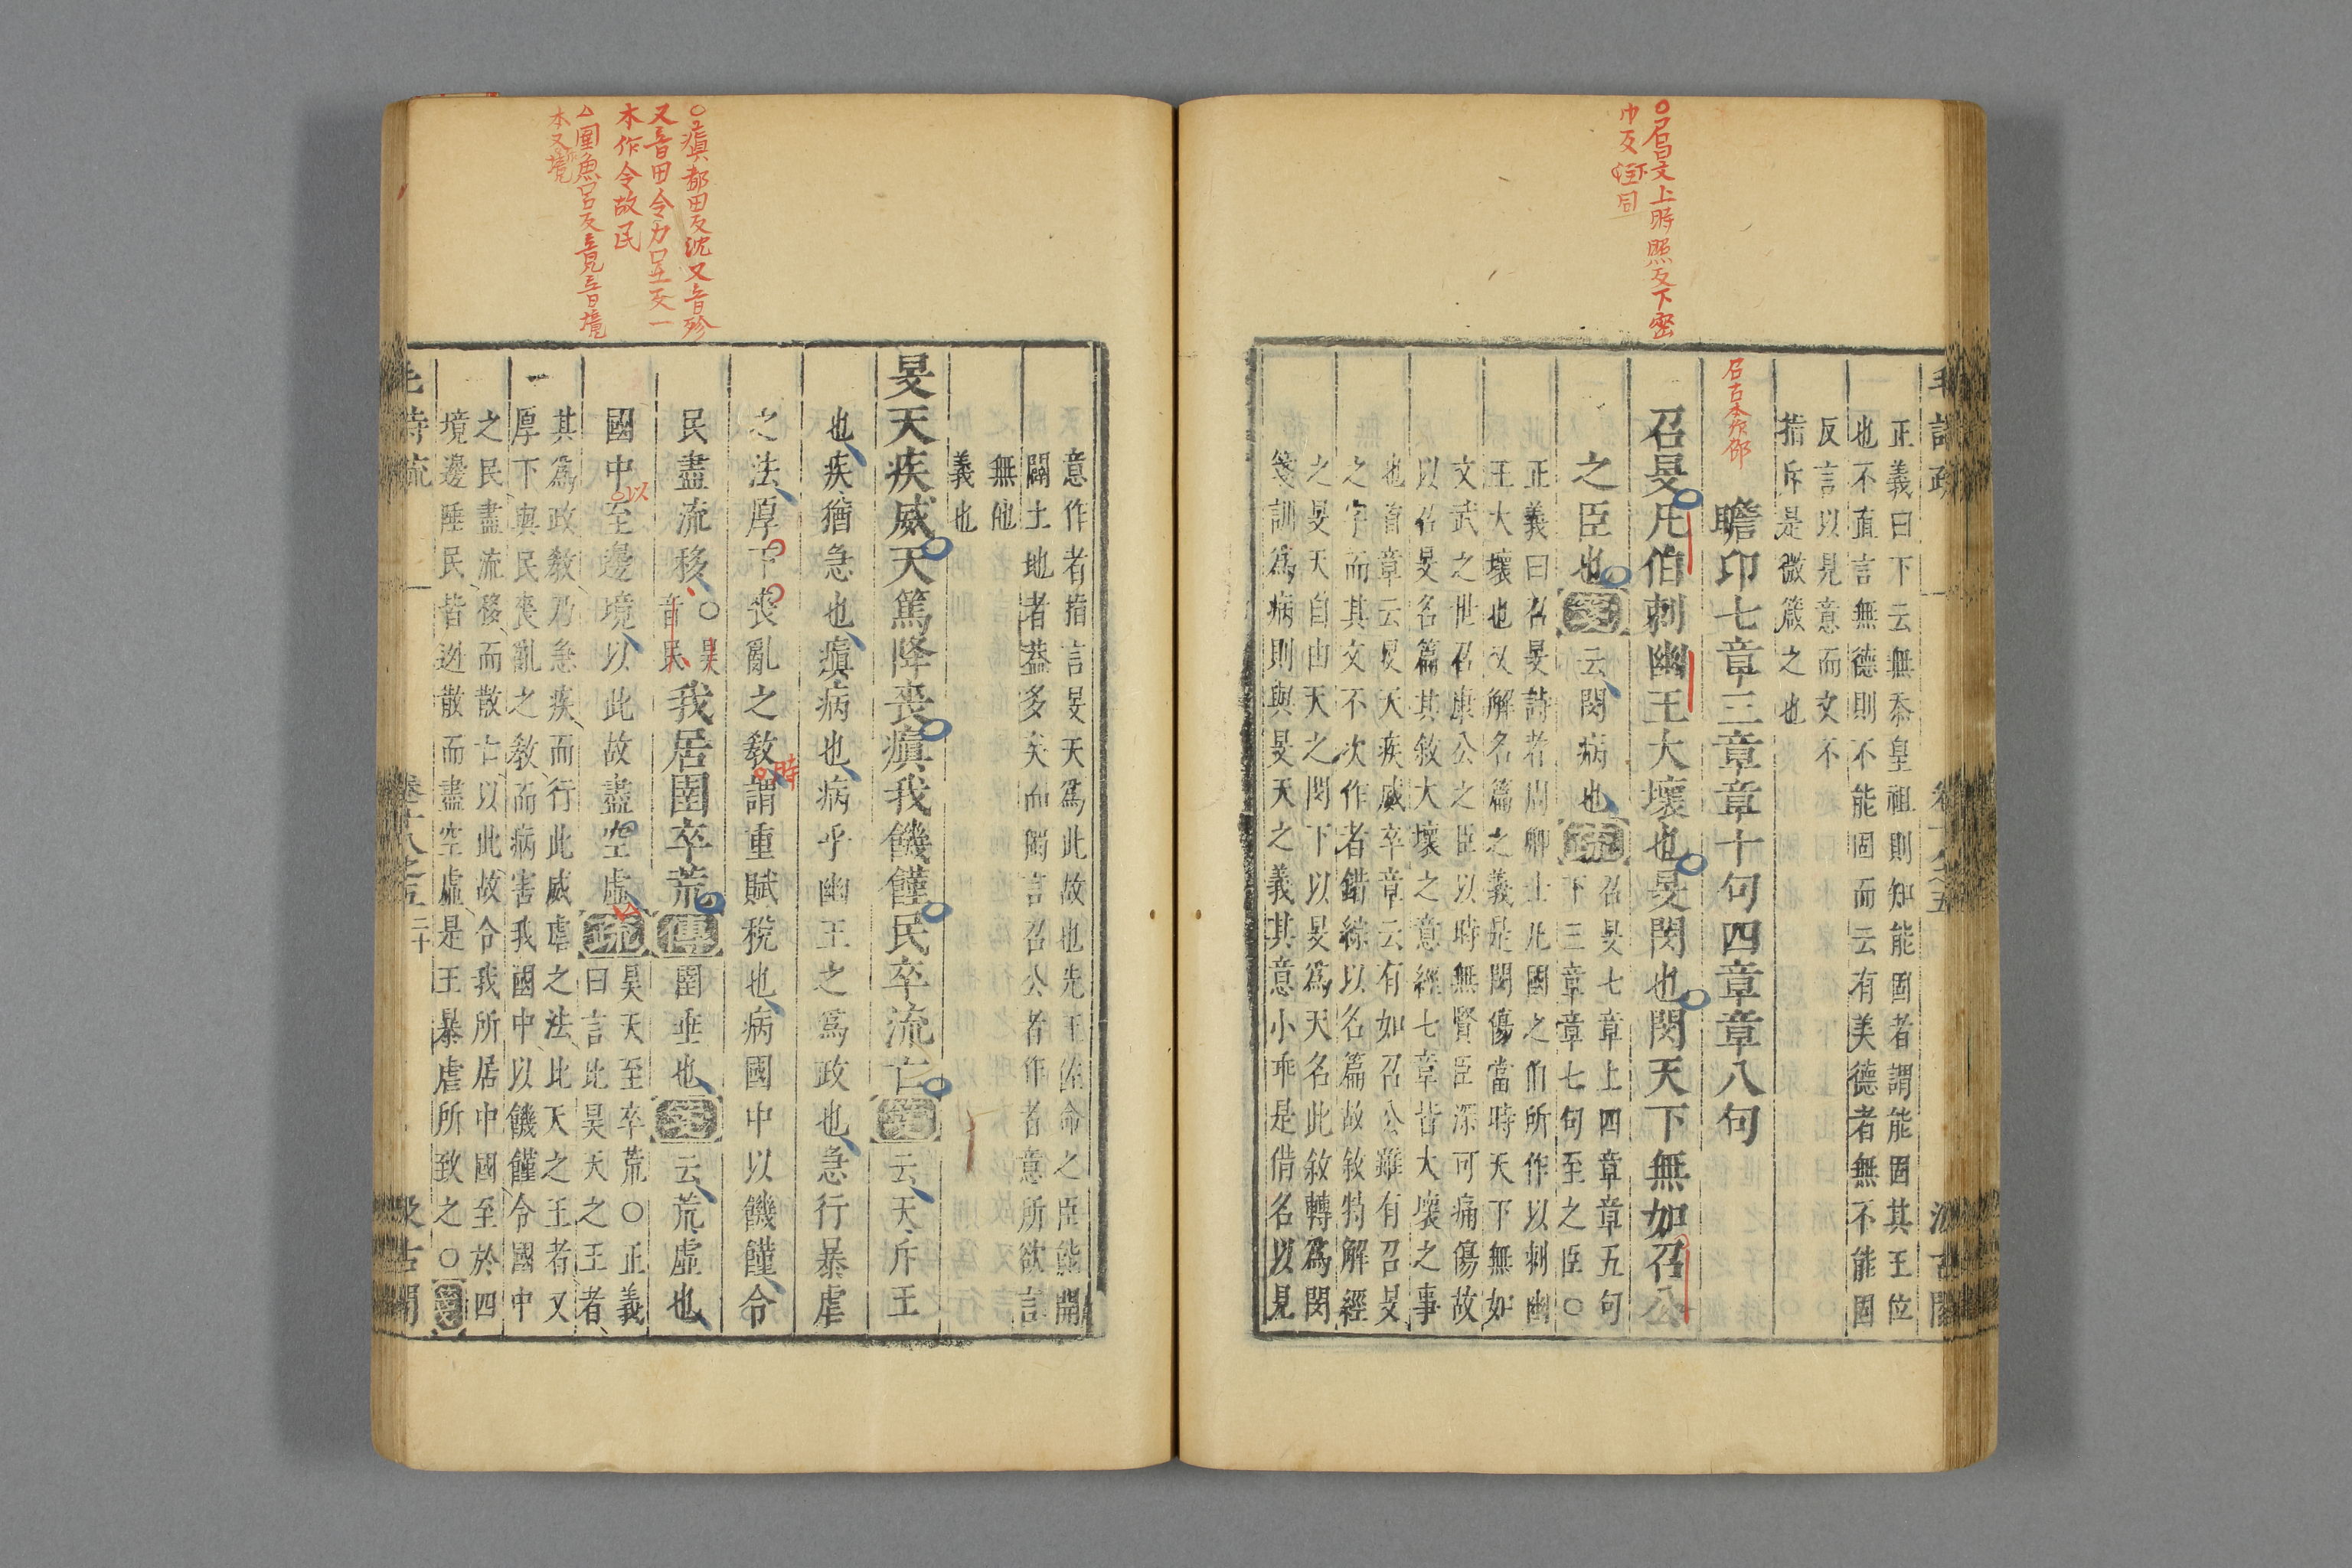 毛詩疏 卷十八之五 汲古閣
正義曰下云無忝皇祖則知能固者謂能固其王位
也不直言無德則不能固而云有美德者無不能固
反言以見意而文不
指斥是微箴之也
召古本作邵
瞻卬七章三章章十句四章章八句
○召旻上時照反下密
巾反注同
召旻凡伯刺幽王大壞也旻閔也閔天下無如召公
之臣也箋云閔病也疏召旻七章上四章章五句
下三章章七句至之臣○
正義曰召旻詩者周卿士凡國之伯所作以刺幽
王大壞也又解名篇之義是閔傷當時天下無如
文武之世召康公之臣以時無賢臣深可痛傷故
以召旻名篇其敘大壞之意經七章皆大壞之事
也首章云旻天疾威卒章云有如召公雖有召旻
之字而其文不次作者錯綜以名篇故敘特解經
之旻天自由天之閔下以旻爲天名此敘轉爲閔
箋訓爲病則與旻天之義其意小乖是借名以見
意作者指言旻天爲此故也先王佐命之臣能開
闢土地者蓋多矣而獨言召公者作者意所欲言
無他
義也
旻天疾威天篤降喪瘨我饑饉民卒流亡箋云天斥王
也疾猶急也瘨病也病乎幽王之爲政也急行暴虐
○瘨都田反沈又音殄
又音田令力呈反一
本作令故民
之法厚下喪亂之教謂重賦稅也病國中以饑饉令
時
民盡流移○昊音民我居圉卒荒傳圉垂也箋云荒虛也
△圉魚呂反竟音境
本又作境
國中至邊境以此故盡空虛疏昊天至卒荒○正義
以
曰言此昊天之王者
其爲政教乃急疾而行此威虐之法比天之王者又
厚下與民喪亂之教而病害我國中以饑饉令國中
之民盡流移而散亡以此故令我所居中國至於四
境邊陲民皆逃散而盡空虛是王暴虐所致之○箋
毛詩疏 卷十八之五 二十 汲古閣